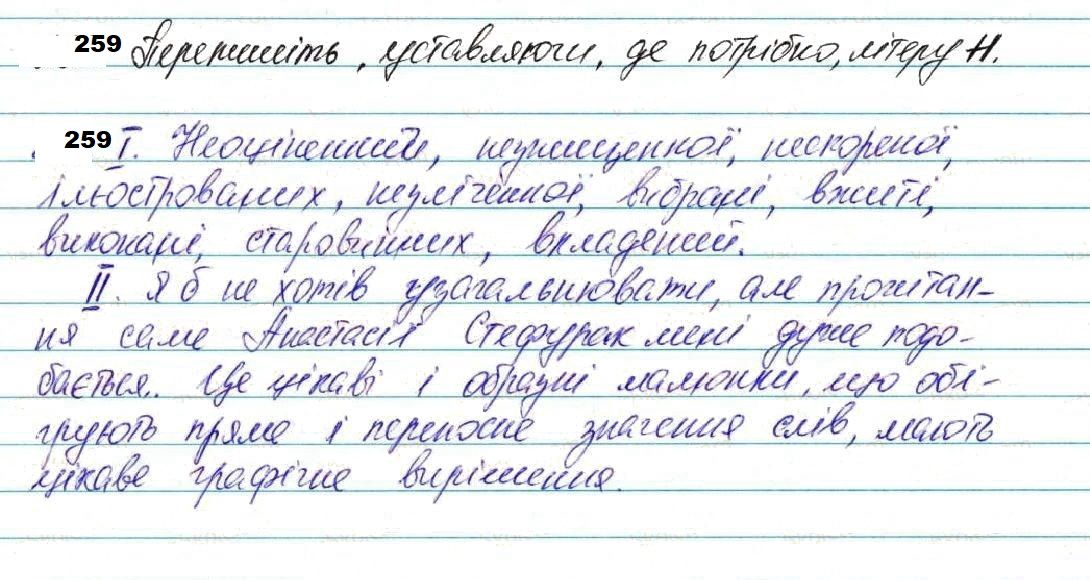 259 Перепишіть, уставляючи, де потрібно, літеру Н.
259 I. Неоціненний, незнищенної, нескореної,
ілюстрованих, незліченної, вибрані, вжиті,
виконані, старовинних, вкладений.
II. Я б не хотів узагальнювати, але прочитан-
ня саме Анастасії Стефурак мені дуже подо-
бається.. Це цікаві і образні малюнки, що обі-
грують пряме і переносне значення слів, мають
цікаве графічне вирішення.